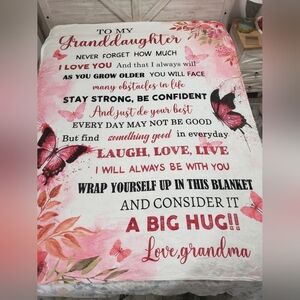 TO MY
Granddaughter
NEVER FORGET HOW MUCH
I LOVE YOU And that I always will
AS YOU GROW OLDER YOU WILL FACE
many obstacles in life
STAY STRONG, BE CONFIDENT
And just do your best
EVERY DAY MAY NOT BE GOOD
But find something good in everyday
LAUGH, LOVE, LIVE
I WILL ALWAYS BE WITH YOU
WRAP YOURSELF UP IN THIS BLANKET
AND CONSIDER IT
A BIG HUG!!
Love, grandma